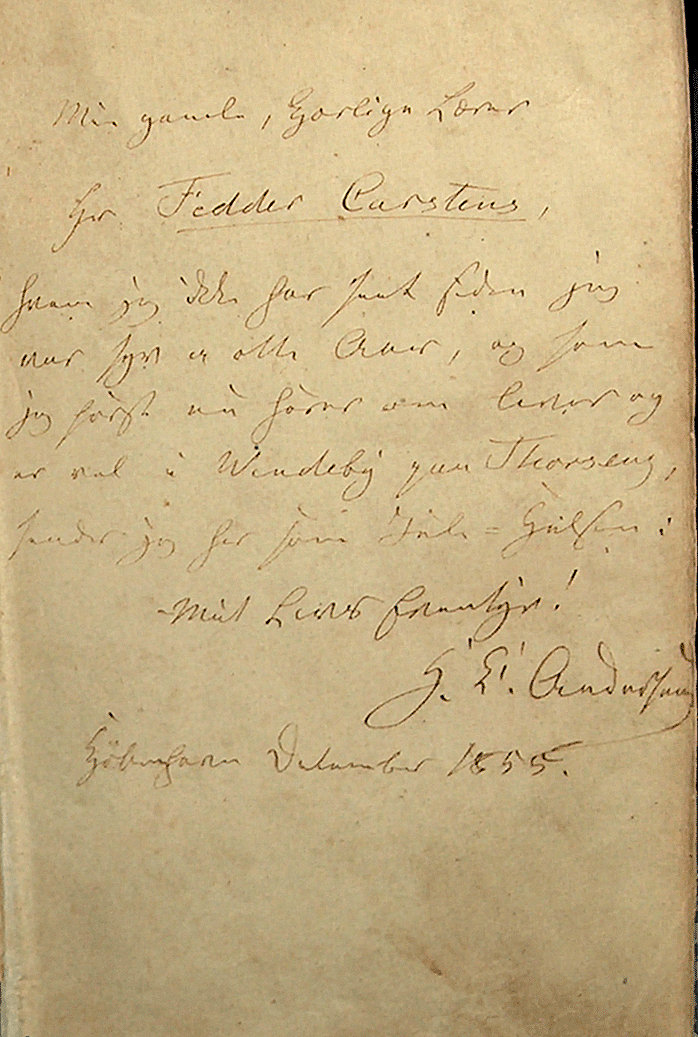 Min gamle, kjærlige Lærer
Hr Fedder Carstens,
hvem jeg ikke har seet siden jeg
var syv a otte Aar, og som
jeg først nu hører om lever og
er vel i Windeby paa Thorseng,
sender jeg her som Jule=Hilsen:
Mit Livs Eventyr!
H. C. Andersen
Kjöbenhavn December 1855.